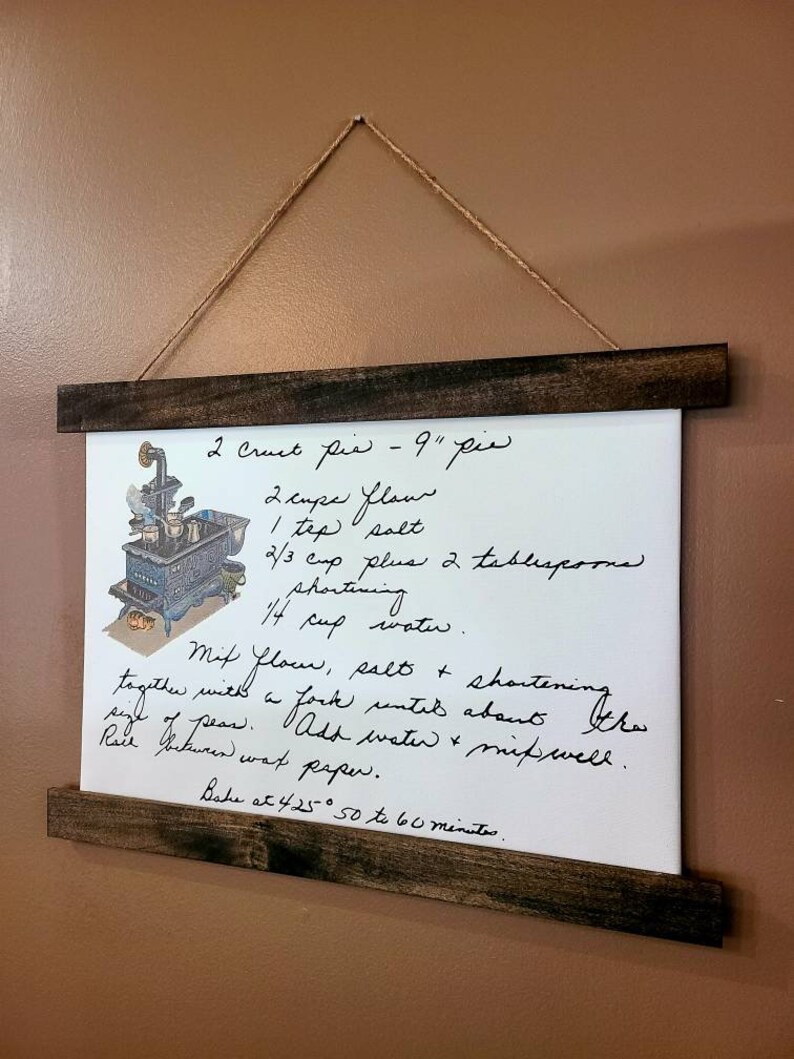 2 Crust pie - 9" pie
2 cups flour
1 tsp salt
2/3 cup plus 2 tablespoons
shortening
1/4 cup water.
Mix flour, salt + shortening
together with a fork until about the
size of peas. Add water + mix well.
Roll between wax paper.
Bake at 425° 50 to 60 minutes.